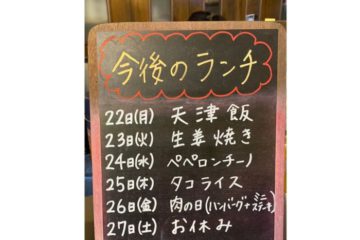 今後のランチ
22日(月) 天津飯
23日(火) 生姜焼き
24日(水) ペペロンチーノ
25日(木) タコライス
26日(金) 肉の日(ハンバーグ+ミニステーキ)
27日(土) お休み